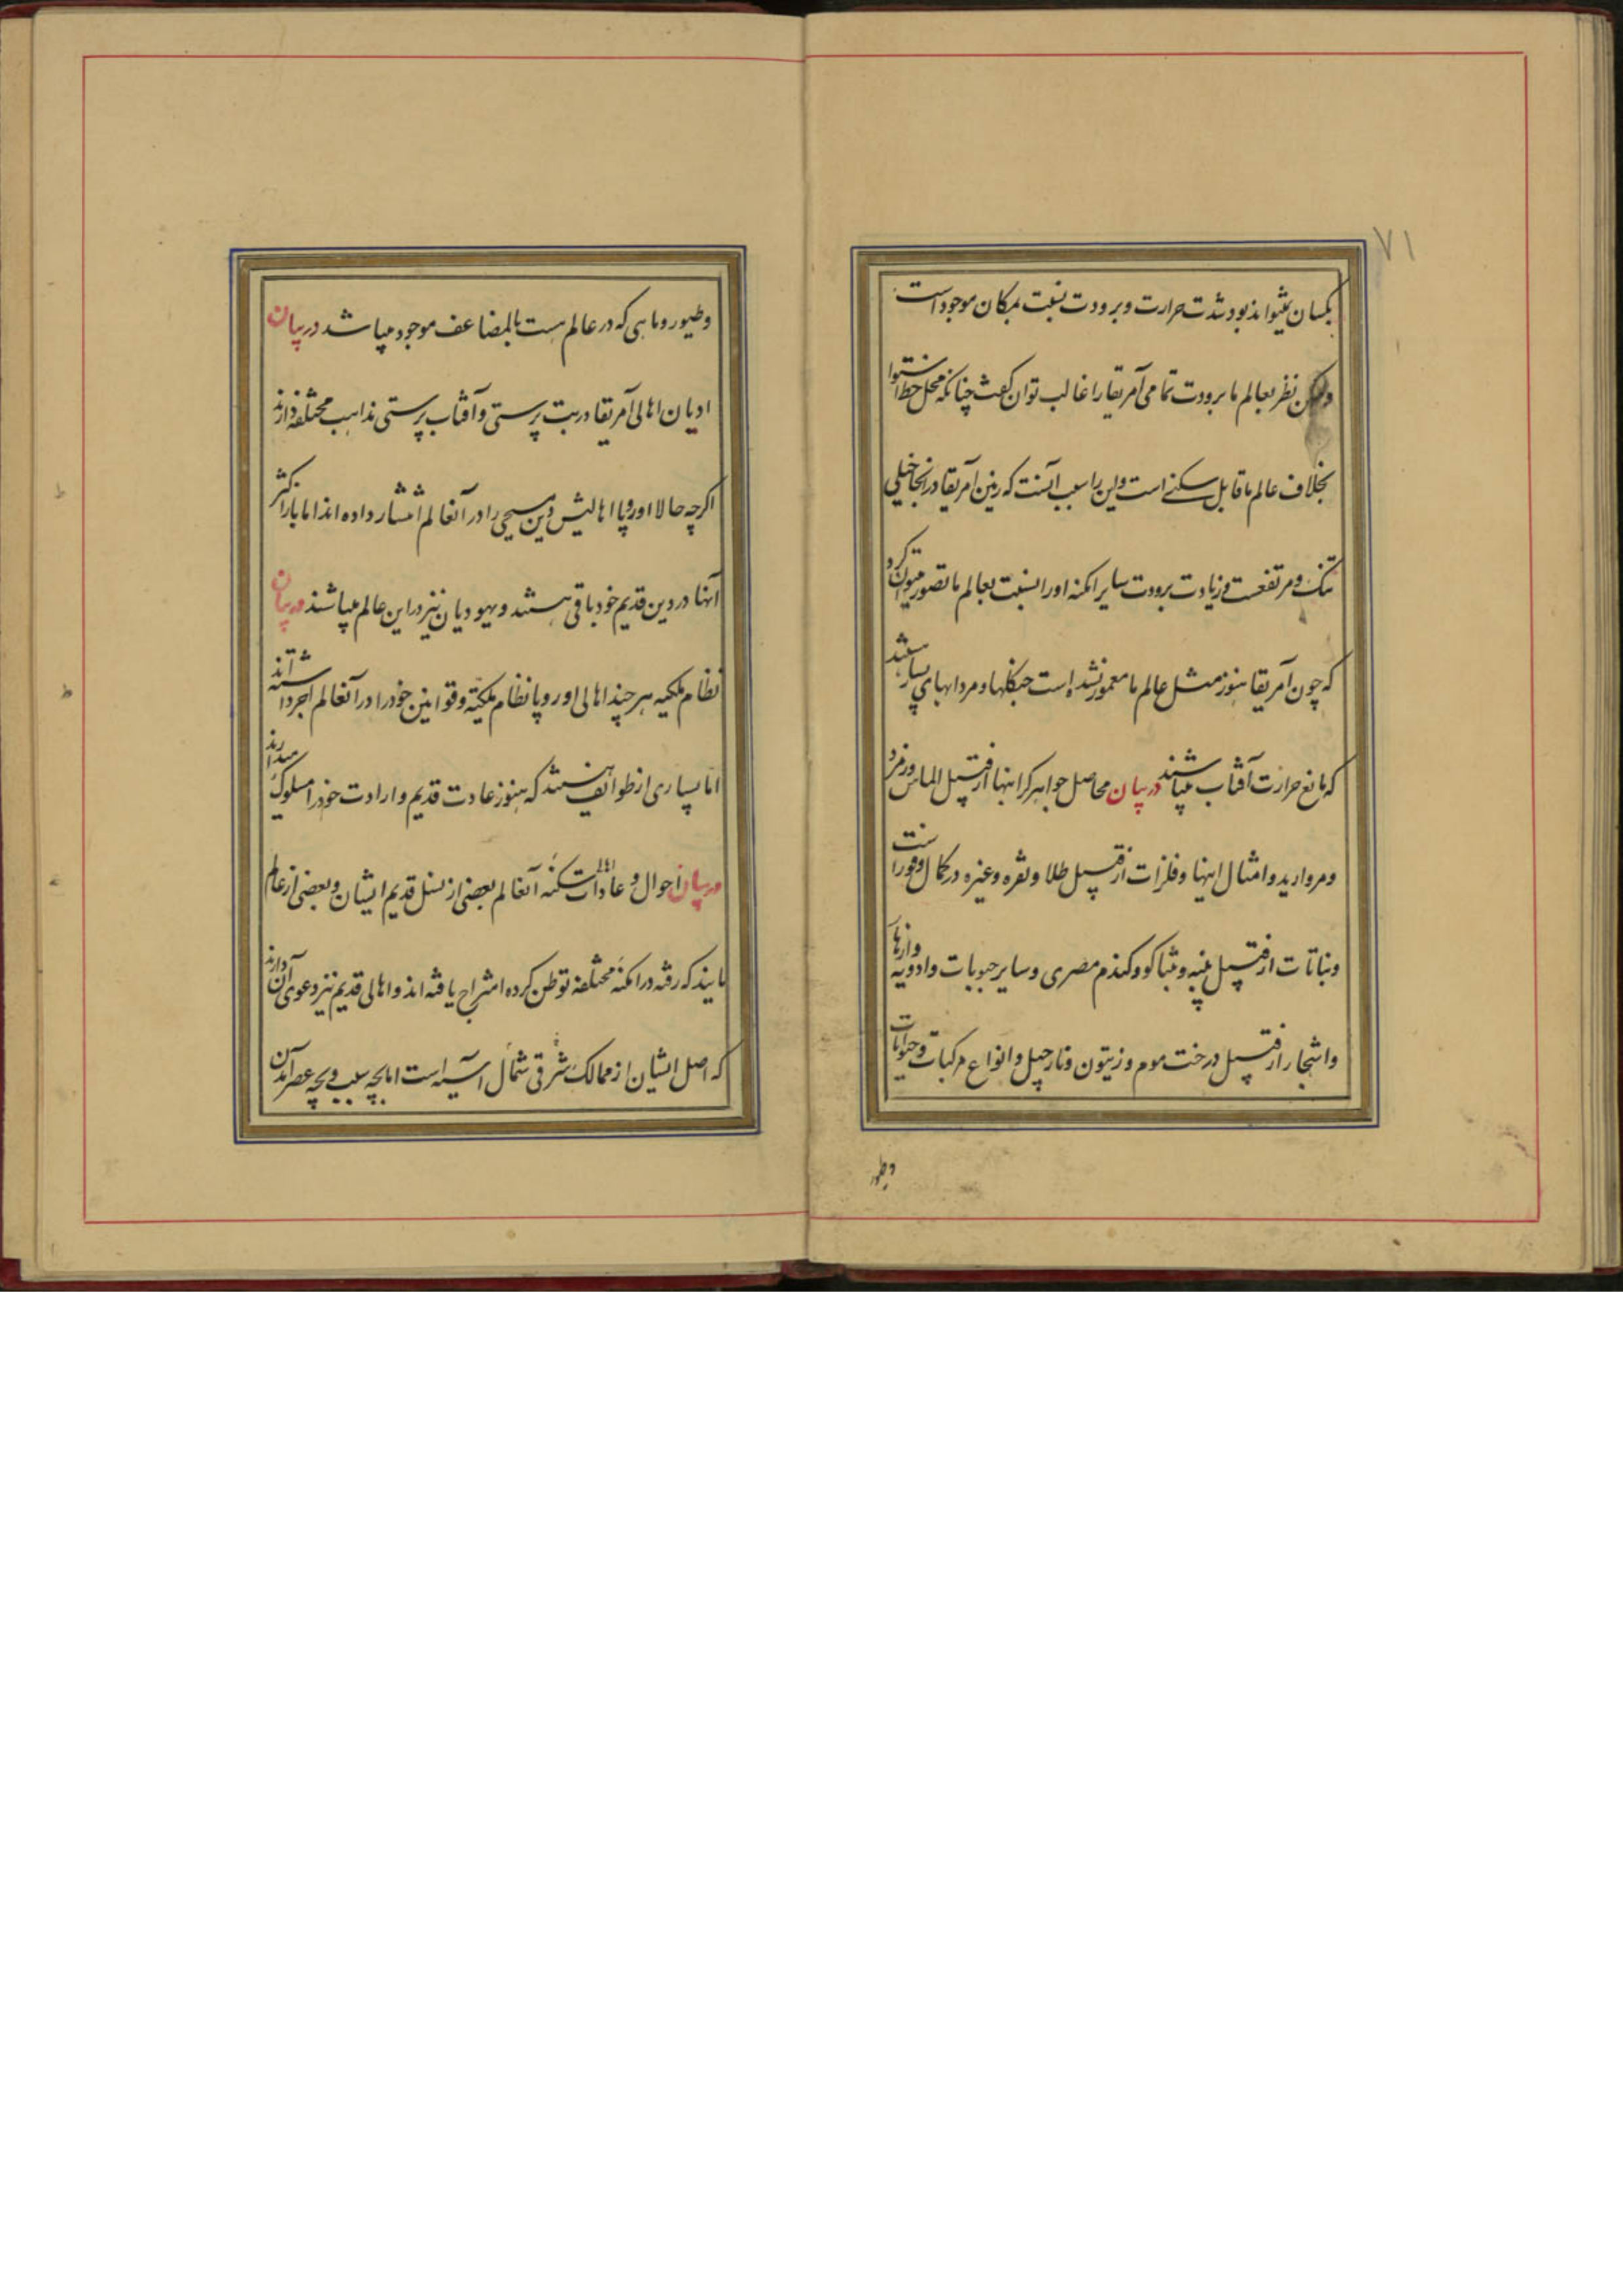 ۷۱
یکسان نمیتواند بود شدت حرارت و برودت نسبت بمکان موجود است
ولیکن نظر بعالم ما برودت تمامی آمریقا را غالب توان گفت چنانکه محل خط استوا
بخلاف عالم ما قابل سکنی است و این را سبب آنست که زمین آمریقا در آنجا خیلی
تنک و مرتفعست و زیادت برودت سایر امکنه او را نسبت بعالم ما تصور میتوان کرد
که چون آمریقا هنوز مثل عالم ما معمور نشده است جنکلها و مردابهای بسیار هستند
که مانع حرارت آفتاب میباشند در بیان محاصل جواهر کرانبها از قبیل الماس و زمرد
و مروارید و امثال اینها و فلزات از قبیل طلا و نقره و غیره در کمال وفور است
و نباتات از قبیل پنبه و تنباکو و کندم مصری و سایر حبوبات و ادویه و ازهار
و اشجار از قبیل درخت موم و زیتون و نارجیل و انواع مرکبات و حیوانات
و طیور
و طیور و ماهی که در عالم هست بالمضاعف موجود میباشد در بیان
ادیان اهالی آمریقا در بت پرستی و آفتاب پرستی مذاهب مختلفه دارند
اکرچه حالا اوروپا اهالیش دین مسیحی را در آنعالم انتشار داده اند اما باز اکثر
آنها در دین قدیم خود باقی هستند و یهودیان نیز در این عالم میباشند در بیان
نظام ملکیه هر چند اهالی اوروپا نظام ملکیه و قوانین خود را در آنعالم اجرا داشته اند
اما بسیاری از طوائف هستند که هنوز عادت قدیم و ارادت خود را مسلوک میدارند
در بیان احوال و عادات سکنه آنعالم بعضی از نسل قدیم ایشان و بعضی از عالم
مایند که رفته در امکنه مختلفه توطن کرده امتزاج یافته اند و اهالی قدیم نیز دعوی آن دارند
که اصل ایشان از ممالک شرقی شمال آسیه است اما بچه سبب و بچه عصر آمدن